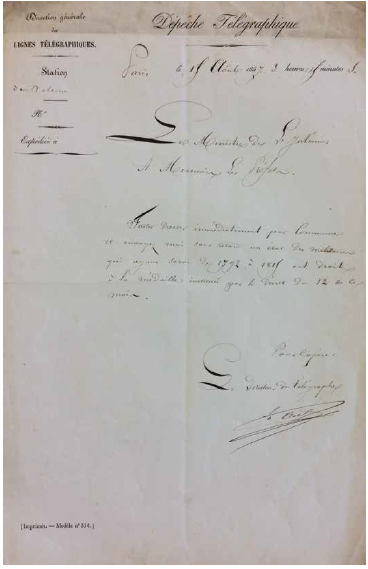 Direction générale
des
LIGNES TÉLÉGRAPHIQUES.
Station
N°
Expédiée à
Dépêche Télégraphique
Paris le 15 Août 1857 3 heures minutes S.
Le Ministre de l'Intérieur
A Messieurs les Préfets.
Faites dresser immédiatement par Commune
et envoyez moi sans retard un état des militaires
qui ayant servi de 1792 à 1815 ont droit
à la médaille instituée par le décret du 12 de ce
mois.
Pour Copie:
Le Directeur du télégraphe
(Imprimés. — Modèle n° 514.)